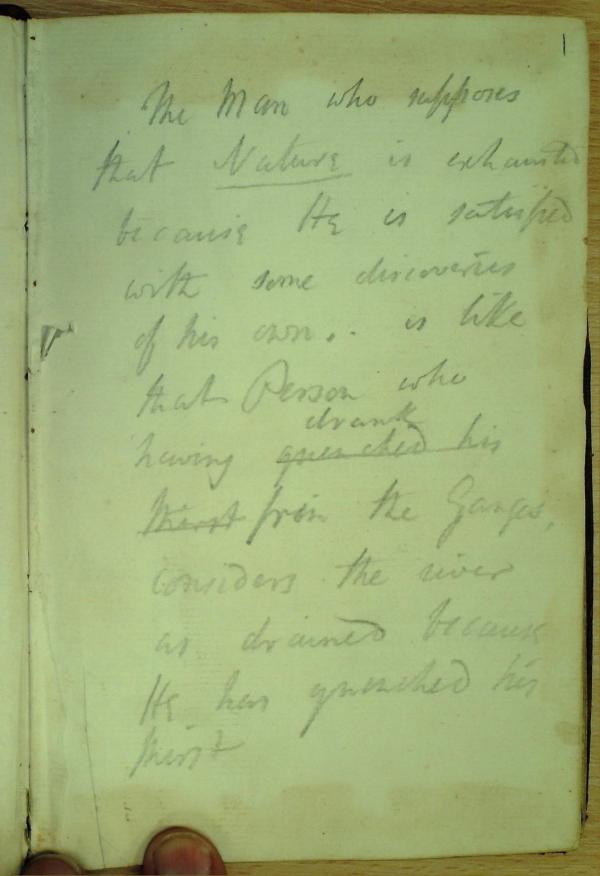 1
The Man who supposes
that Nature is exhausted
because He is satisfied
with some discoveries
of his own.. is like
that Person who
drank
having quenched his
thirst from the Ganges,
considers the river
as drained because
He has quenched his
thirst